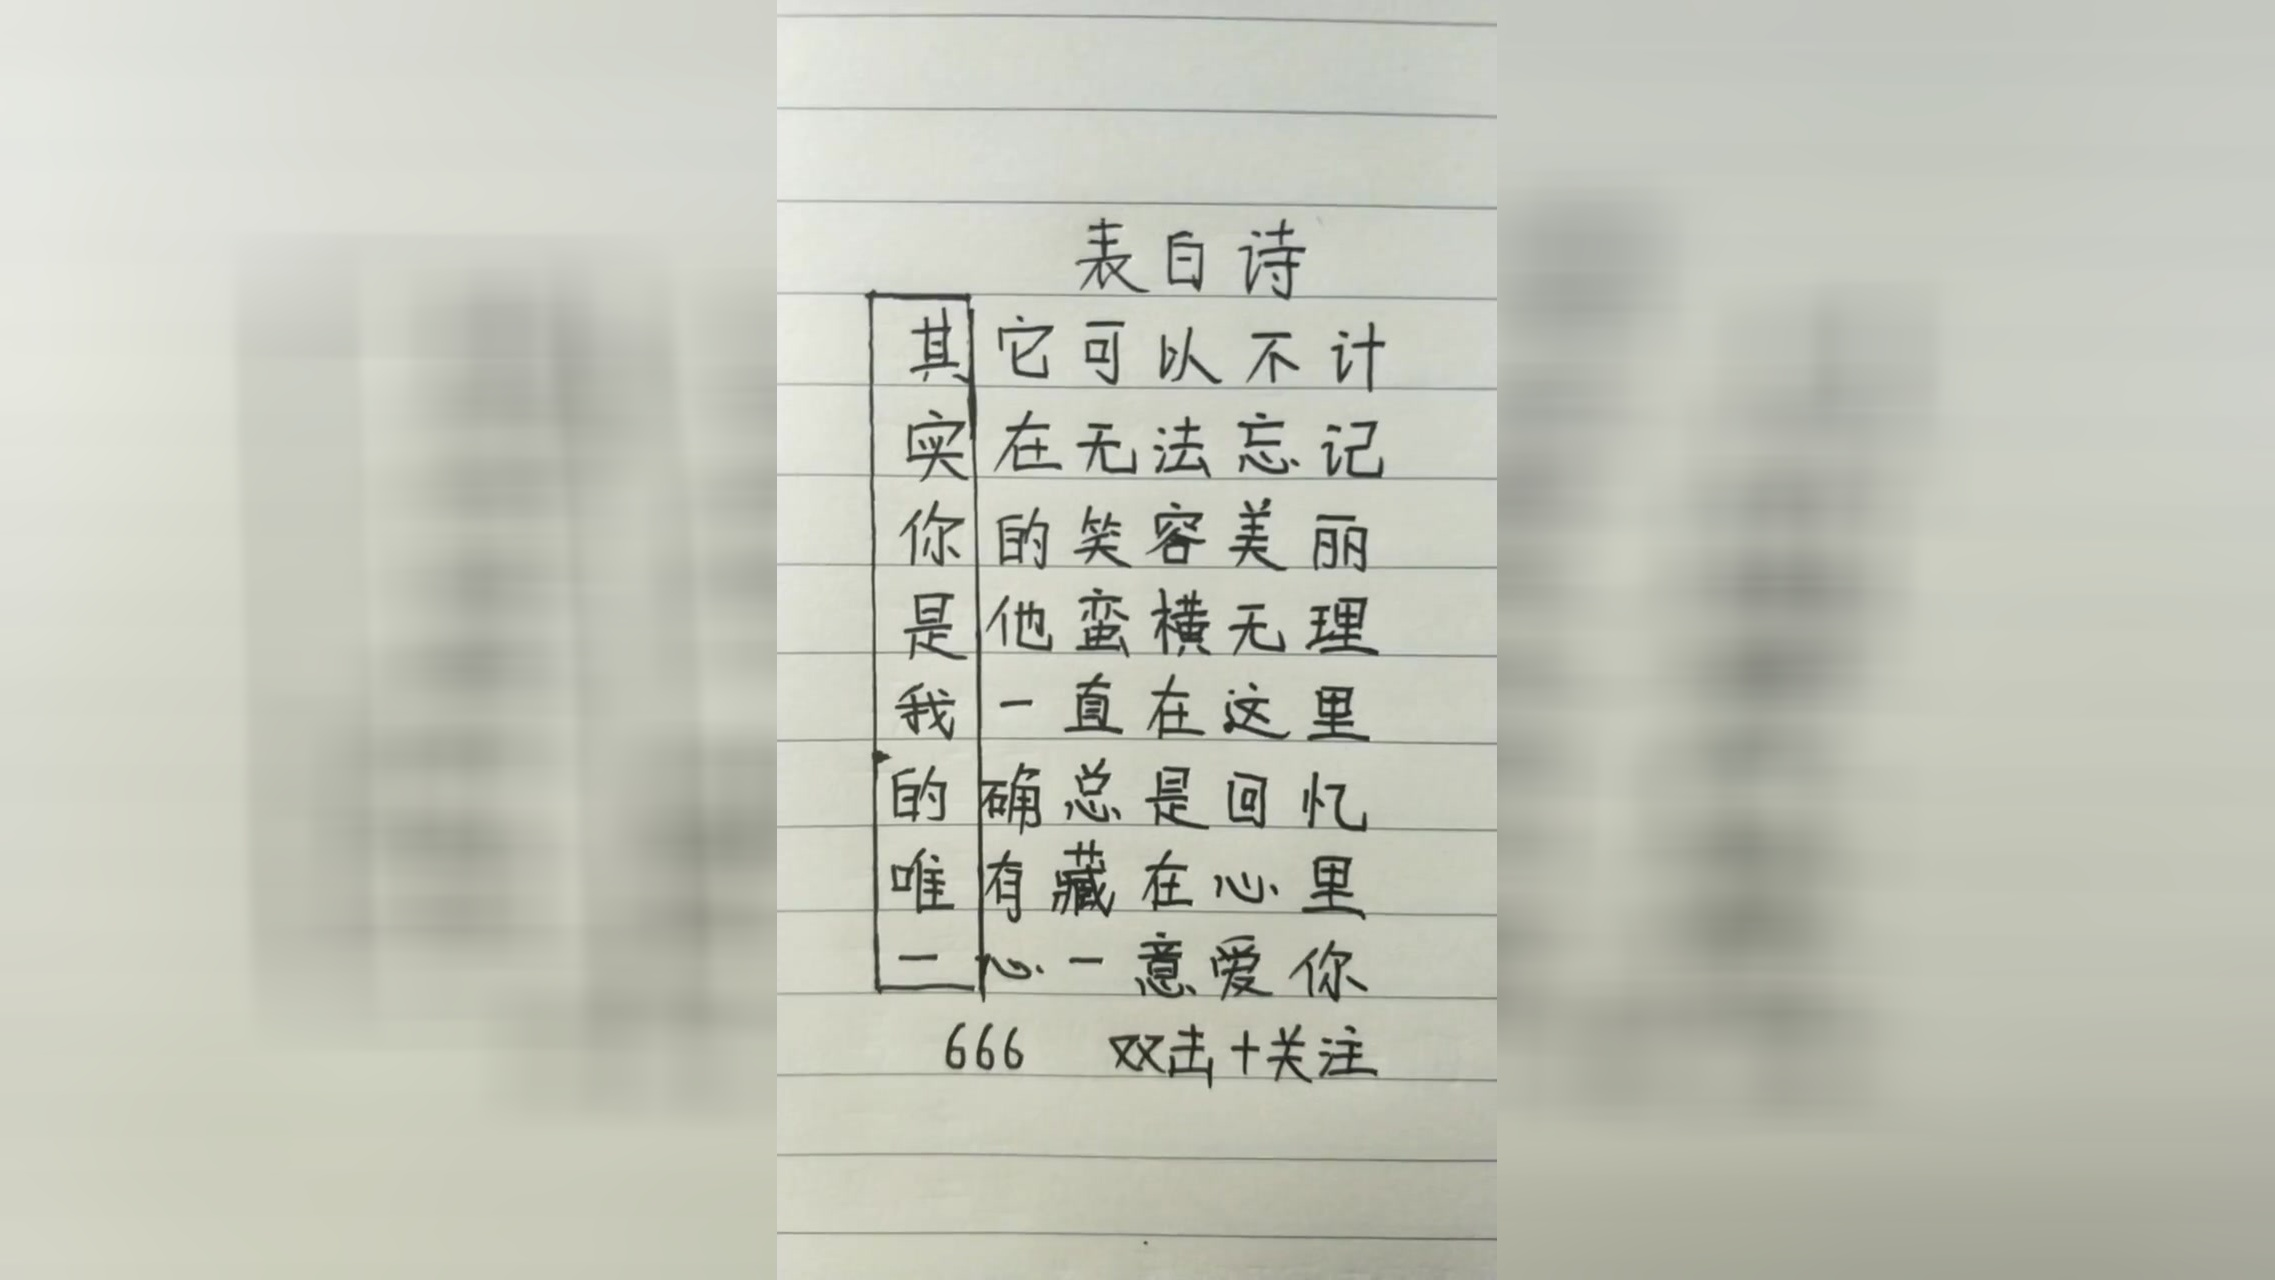 表白诗
其它可以不计
实在无法忘记
你的笑容美丽
是他蛮横无理
我一直在这里
的确总是回忆
唯有藏在心里
一心一意爱你
666 双击+关注